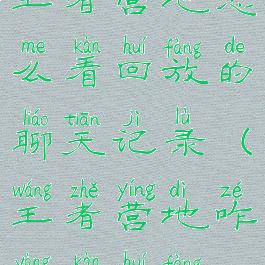 me kàn huí fàng de
么看回放的
liáo tiān jì lù
聊天记录（
wáng zhě yíng dì zé
王者营地咋
yàng kàn huí fàng